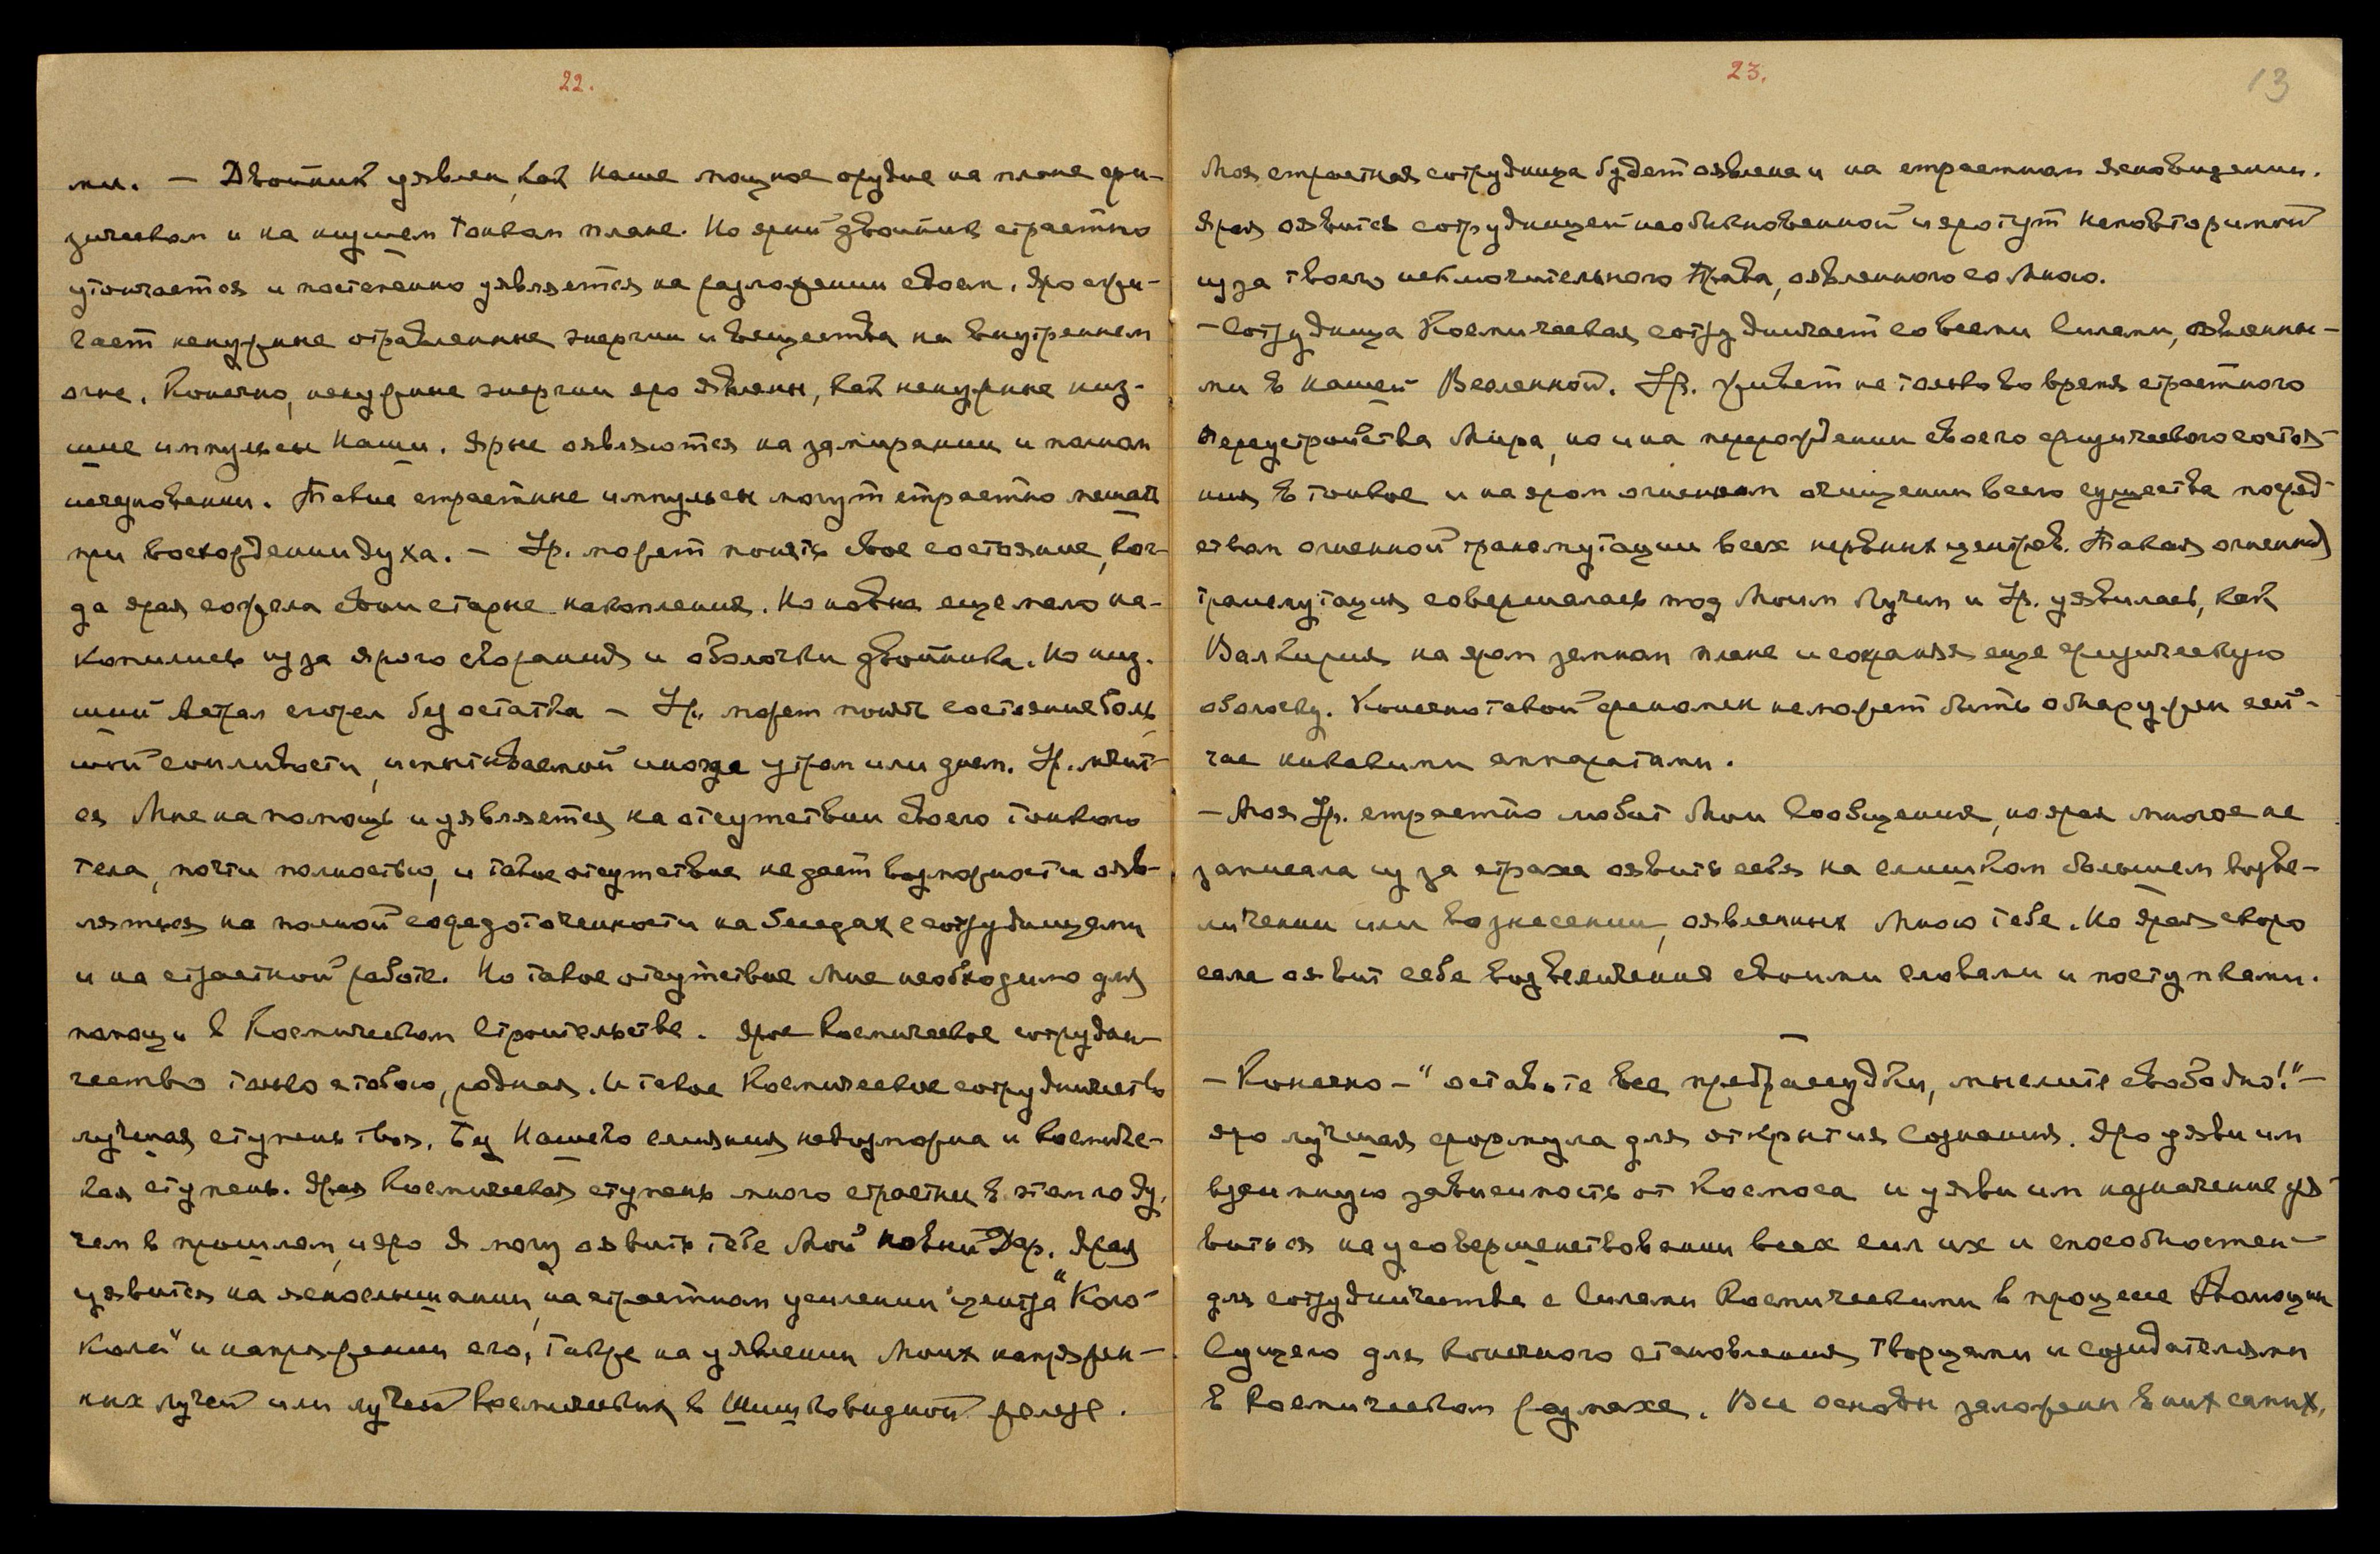 22.
ми. — Двойник уявлен, как наше мощное орудие на плане фи-
зическом и на низшем тонком плане. Но ярый двойник страстно
утончается и постепенно уявляется на разложении своем. Яро сжи-
гает ненужные отравленные энергии и вещества на внутреннем
огне. Конечно, ненужные энергии яро явлены, как ненужные низ-
шие импульсы наши. Ярые оявляются на замирании и полном
исчезновении. Такие страстные импульсы могут страстно мешать
при восхождении духа. — Ур. может понять свое состояние, ког-
да ярая сожгла свои старые накопления. Но новых еще мало на-
копилось из за ярого сгорания и оболочки двойника. Но низ-
ший Астрал сгорел без остатка — Ур. может понять состояние боль
шой сонливости, испытываемой иногда утром или днем. Ур. мчит-
ся Мне на помощь и уявляется на отсутствии своего тонкого
тела, почти полностью, и такое отсутствие не дает возможности ояв-
ляться на полной сосредоточенности на беседах с сотрудницами
и на страстной работе. Но такое отсутствие Мне необходимо для
помощи в Космическом Строительстве. Ярое Космическое сотрудни-
чество только с тобою, родная. И такое Космическое сотрудничество
лучшая ступень твоя. Без Нашего слияния невозможна и космиче-
кая ступень. Ярая Космическая ступень много страстнее в этом году,
чем в прошлом, и яро Я могу оявить тебе Мой новый Дар. Ярая
уявится на яснослышании, на страстном усилении центра "Коло-
кола" и напряжении его, также на уявлении Моих напряжен-
ных лучей или лучей Космических в Шишковидной железе.
23.
13
Моя страстная сотрудница будет оявлена и на страстном ясновидении.
Ярая оявится сотрудницей необыкновенной и яро тут неповторимой
из за твоего исключительного Права, оявленного со Мною.
— Сотрудница Космическая сотрудничает со всеми Силами, оявленны-
ми в нашей Вселенной. Ур. живет не только во время страстного
переустройства Мира, но и на перерождении своего физического состоя-
ния в тонкое и на яром огненном очищении всего существа посред-
ством огненной трансмутации всех нервных центров. Такая огненная
трансмутация совершалась под Моим Лучем и Ур. уявилась, как
Валкирия на яром земном плане и сохраняя еще физическую
оболочку. Конечно такой феномен не может быть обнаружен сей-
час никакими аппаратами.
— Моя Ур. страстно любит Мои Сообщения, но ярая многое не
записала из за страха оявить себя на слишком большем возве-
личении или вознесении, оявленных Мною тебе. Но Ярая скоро
сама оявит себе возвеличение своими словами и поступками.
—
— Конечно — "оставьте все предрассудки, мыслите свободно!" —
яро лучшая формула для открытия Сознания. Яро уяви им
взаимную зависимость от Космоса и уяви им назначение уя-
виться на усовершенствовании всех сил их и способностей —
для сотрудничества с Силами Космическими в процессе Эволюции
Сущего для конечного становления Творцами и Созидателями
в Космическом размахе. Все основы заложены в них самих,